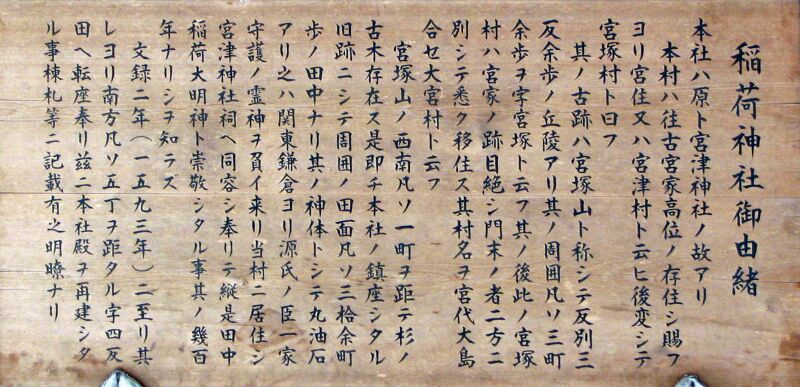 稲荷神社御由緒
本社ハ原ト宮津神社ノ故アリ
本村ハ往古宮家高位ノ存住シ賜フ
ヨリ宮住又ハ宮津村ト云ヒ後変シテ
宮塚村ト曰フ
其ノ古跡ハ宮塚山ト称シテ反別三
反余歩ノ丘陵アリ其ノ周囲凡ソ三町
余歩ヲ字宮塚ト云フ其ノ後此ノ宮塚
村ハ宮家ノ跡目絶シ門末ノ者二方ニ
別シテ悉ク移住ス其村名ヲ宮代大島
合セ大宮村ト云フ
宮塚山ノ西南凡ソ一町ヲ距テ杉ノ
古木存在ス是即チ本社ノ鎮座シタル
旧跡ニシテ周囲ノ田面凡ソ三拾余町
歩ノ田中ナリ其ノ神体トシテ丸油石
アリ之ハ関東鎌倉ヨリ源氏ノ臣一家
守護ノ霊神ヲ負イ来リ当村ニ居住シ
宮津神社祠ヘ同容シ奉リテ縦是田中
稲荷大明神ト崇敬シタル事其ノ幾百
年ナリシヲ知ラズ
文録二年(一五九三年)ニ至リ其
レヨリ南方凡ソ五丁ヲ距タル字四反
田ヘ転座奉リ茲ニ本社殿ヲ再建シタ
ル事棟札等ニ記載有之明瞭ナリ